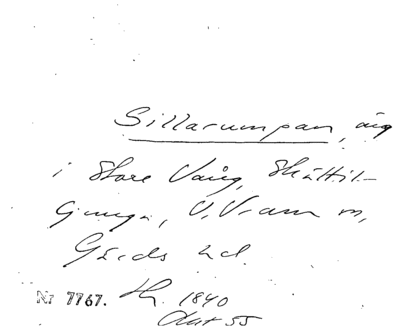 Sillarumpan, äng
i Store Vång, Skättil-
ljunga, V. Vram sn,
Gärds hd.
Nr 7767. Lh. 1840
Akt 55